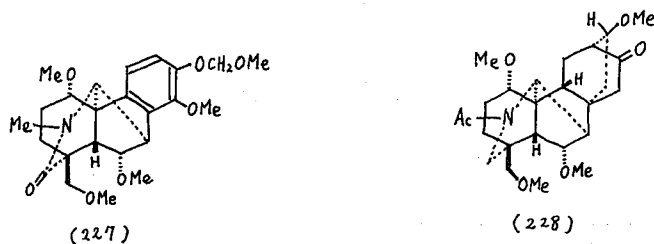 MeO
OCH₂OMe
OMe
Me
N
H
O
OMe
OMe
(227)
H
OMe
MeO
O
H
Ac
N
H
OMe
OMe
(228)